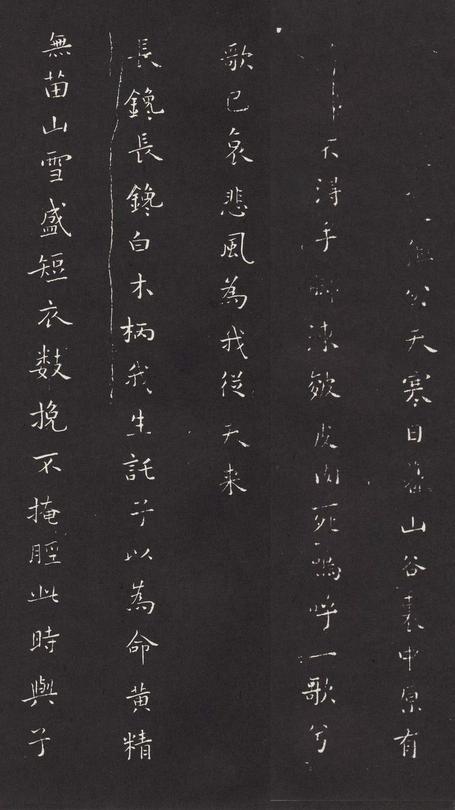 公天寒日暮山谷裏中原有
不得手脚凍皴皮肉死嗚呼一歌兮
歌已哀悲風為我從天来
長鑱長鑱白木柄我生託子以為命黄精
無苗山雪盛短衣數挽不掩脛此時與子